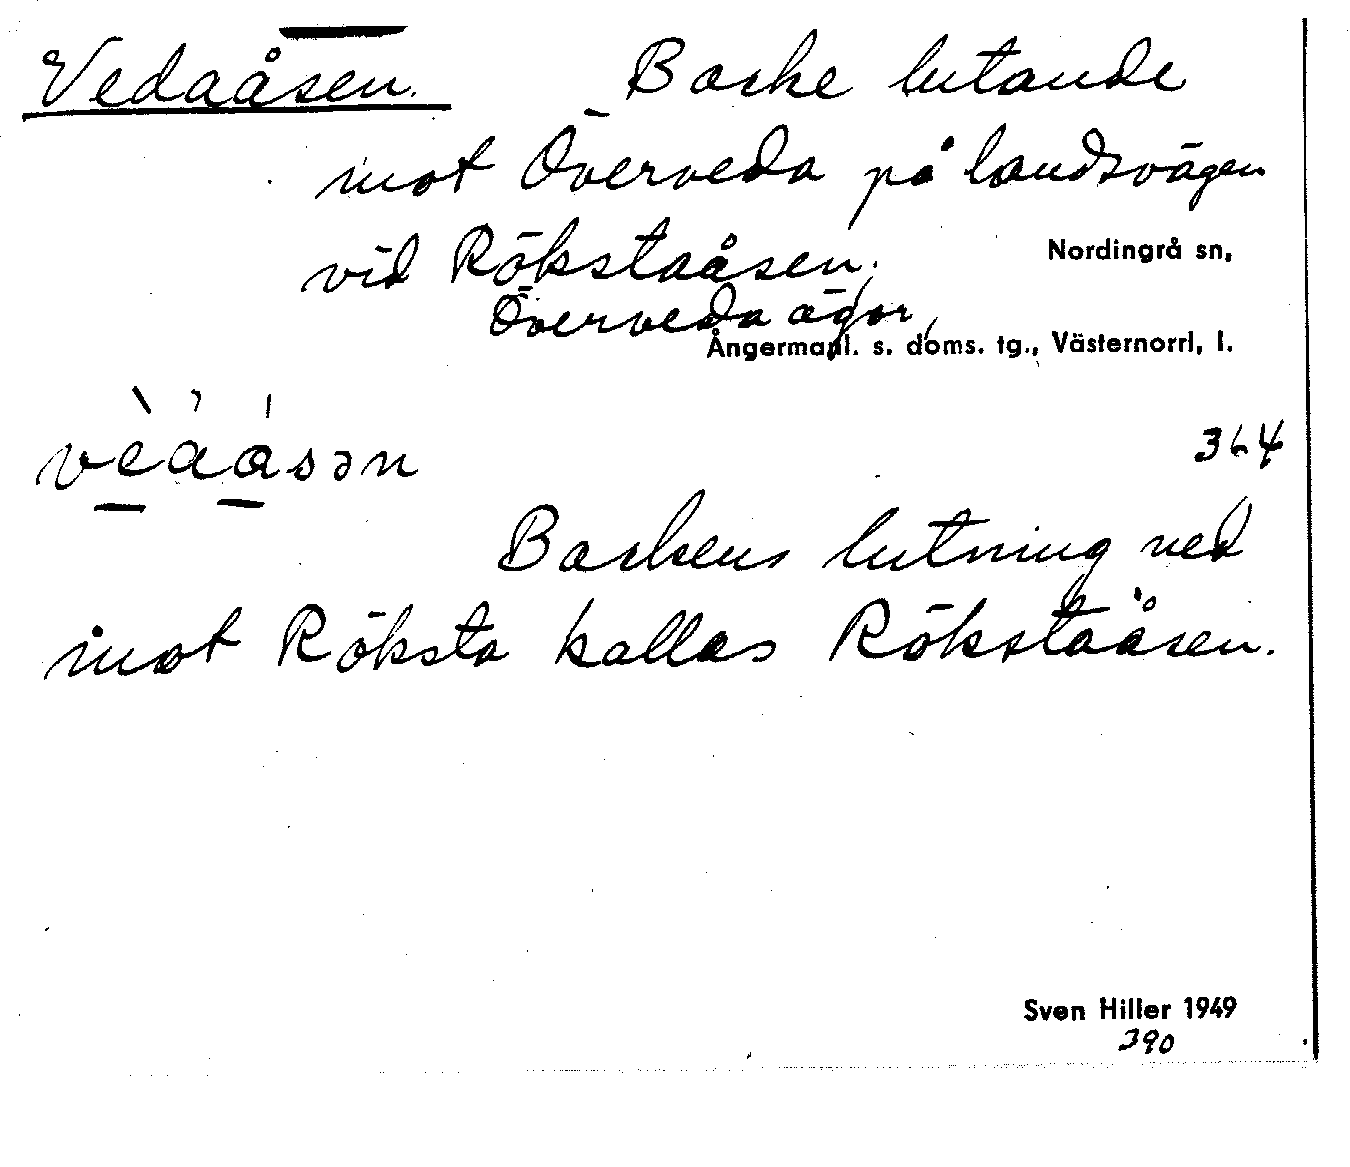 Vedaåsen. Backe lutande
mot Överveda på landsvägen
vid Rökstaåsen,
Nordingrå sn,
Överveda ägor,
Ångermanl. s. doms. tg., Västernorrl, l.
vèaåsən
364
Backens lutning ned
mot Röksta kallas Rökstaåsen.
Sven Hiller 1949
390